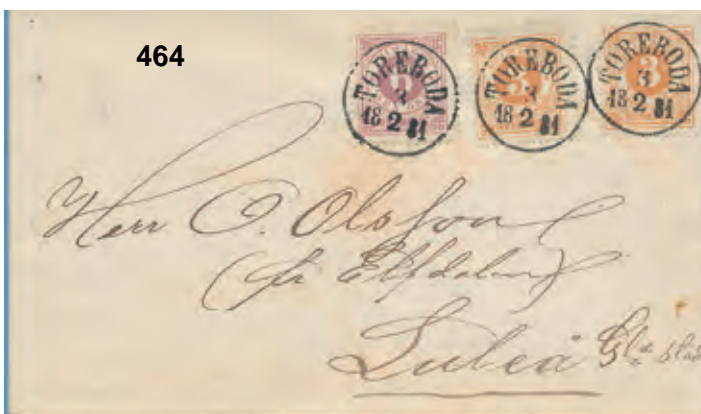 464
TOREBODA
3
18 2 81
TOREBODA
3
18 2 81
TOREBODA
3
18 2 81
6
3
3
Herr C. Olsson
(fr Elfdalen)
Luleå Gla Stad